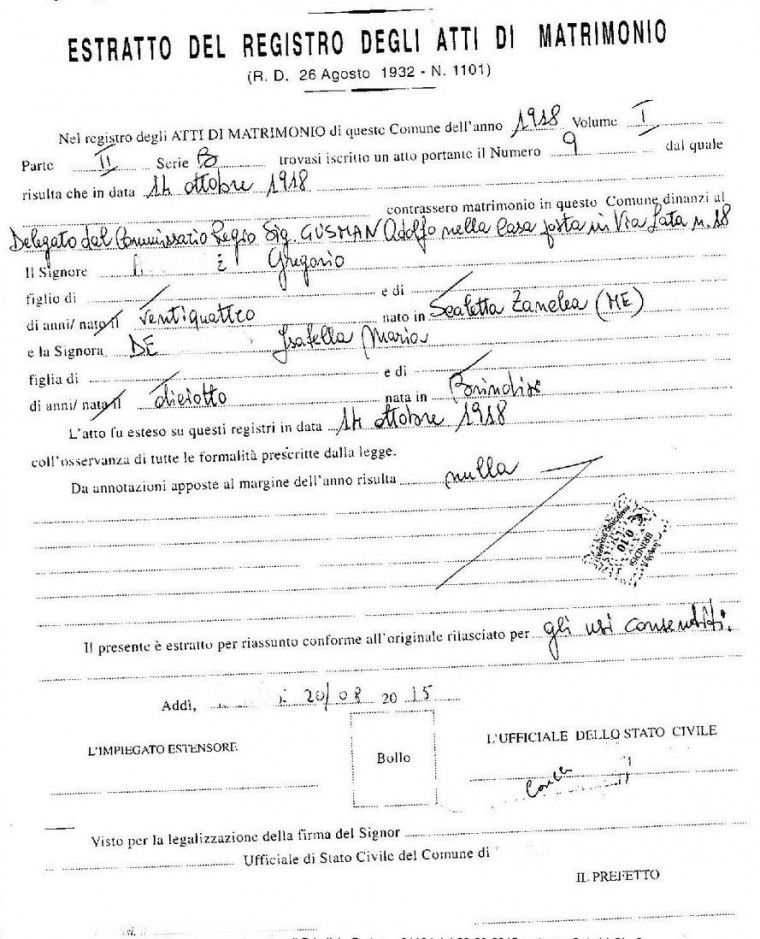 ESTRATTO DEL REGISTRO DEGLI ATTI DI MATRIMONIO
(R. D. 26 Agosto 1932 - N. 1101)
Nel registro degli ATTI DI MATRIMONIO di queste Comune dell'anno 1918 Volume I
Parte II Serie B trovasi iscritto un atto portante il Numero 9 dal quale
risulta che in data 14 ottobre 1918
contrassero matrimonio in questo Comune dinanzi al
Delegato dal Commissario Regio Sig. GUSMAN Adolfo nella Casa posta in Via Lata n. 18
Il Signore Gregorio
figlio di e di
di anni/ nato il ventiquattro nato in Scaletta Zanclea (ME)
e la Signora DE Isabella Maria
figlia di e di
di anni/ nata il diciotto nata in Brindisi
L'atto fu esteso su questi registri in data 14 ottobre 1918
coll'osservanza di tutte le formalità prescritte dalla legge.
Da annotazioni apposte al margine dell'anno risulta nulla
BRINDISI
010
Il presente è estratto per riassunto conforme all'originale rilasciato per gli usi consentiti.
Addì, 20/08 2015
L'IMPIEGATO ESTENSORE
Bollo
L'UFFICIALE DELLO STATO CIVILE
Visto per la legalizzazione della firma del Signor
Ufficiale di Stato Civile del Comune di
IL PREFETTO